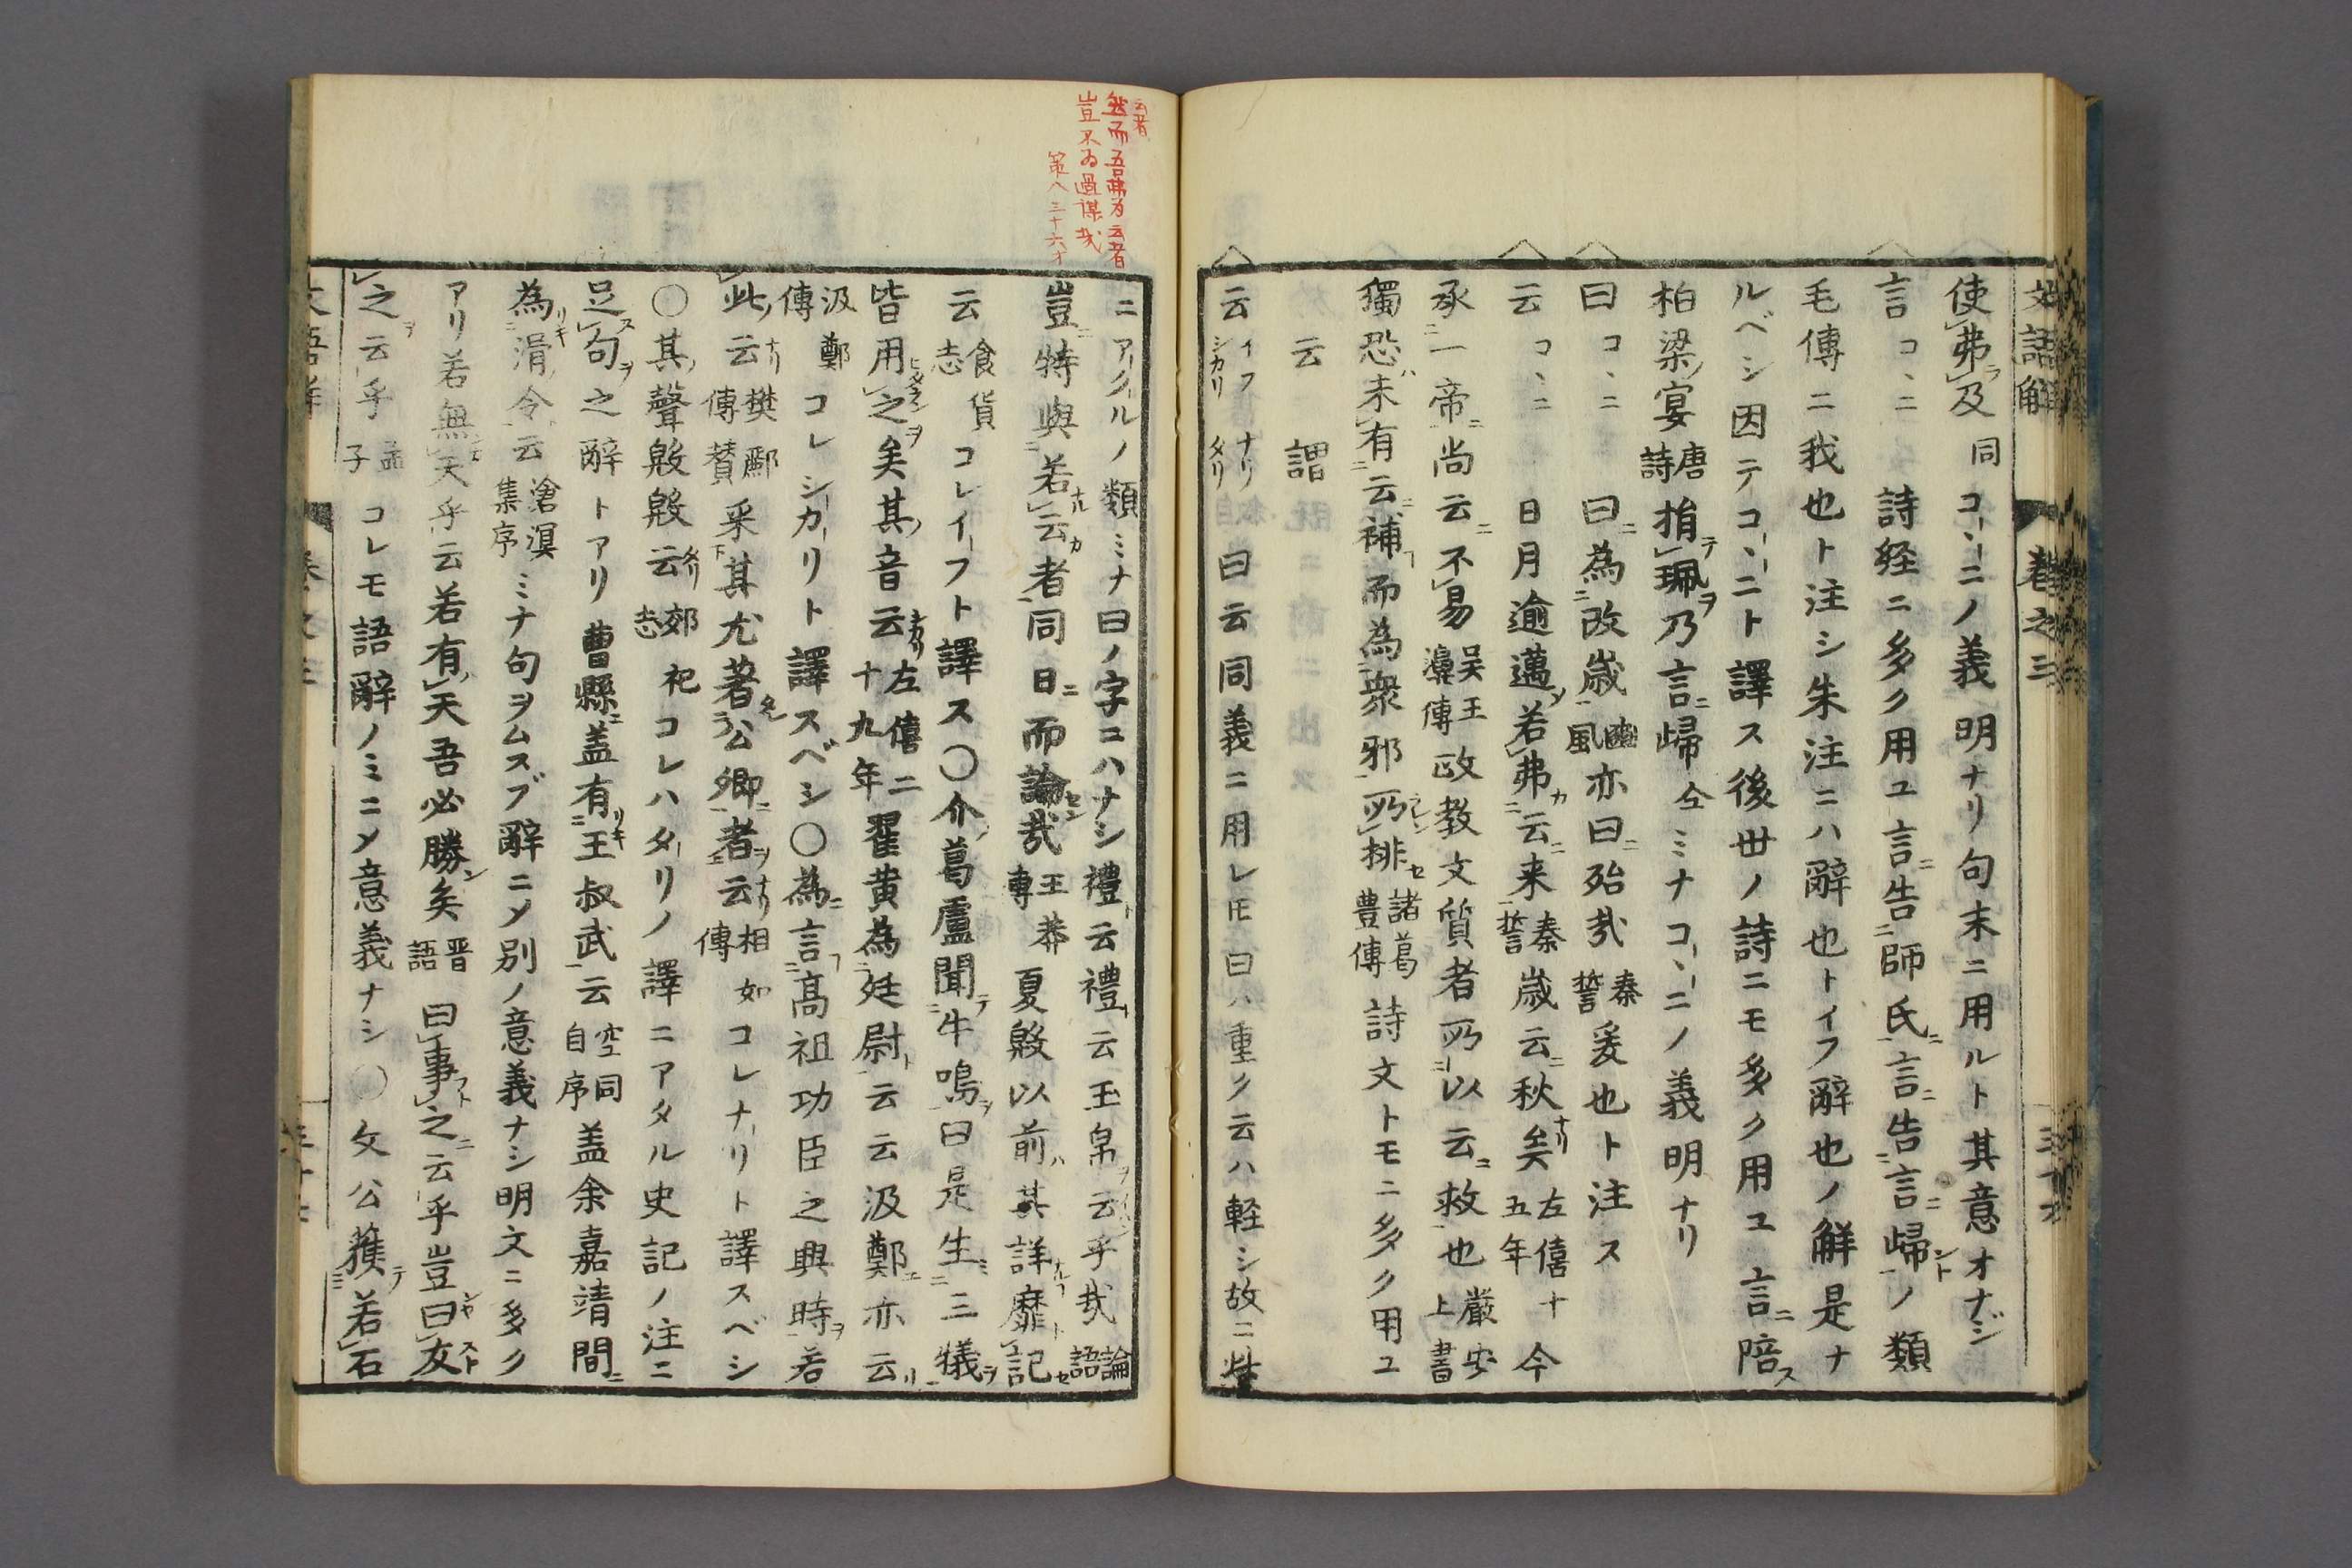 文語解 卷之三
使弗及同コヽニノ義明ナリ句末ニ用ルト其意オナジ
言コヽニ 詩経ニ多ク用ユ言告師氏言告言歸ノ類
毛傳ニ我也ト注シ朱注ニハ辭也トイフ辭也ノ解是ナ
ルベシ因テコヽニト譯ス後世ノ詩ニモ多ク用ユ言陪
柏梁宴唐詩捐珮乃言歸仝ミナコヽニノ義明ナリ
曰コヽニ 曰為改歳豳風亦曰殆哉秦誓爰也ト注ス
云コヽニ 日月逾邁若弗云来秦誓歳云秋矣左僖十五年今
承一帝尚云不易吴王濞傳政教文質者所以云救也嚴安上書
獨恐未有云補而為衆邪所排諸葛豊傳詩文トモニ多ク用ユ
云 謂
云イフ ナリ シカリ タリ 曰云同義ニ用レ㡯曰ハ重ク云ハ軽シ故ニ此
云者
然而吾弗为云者
豈不为過謀哉
策八三十六オ
ニアグルノ類ミナ曰ノ字ニハナシ禮云禮云玉帛云乎哉論語
豈特與若云者同日而論哉王莽傳夏殷以前其詳靡記
云食貨志コレイフト譯ス〇介葛盧聞牛鳴曰是生三犧
皆用之矣其音云左僖二十九年翟黄為廷尉云云汲鄭亦云
汲鄭傳コレシカリト譯スベシ〇為言髙祖功臣之興時若
此云樊酈傳賛采其尤著公卿者云相如傳コレナリト譯スベシ
〇其聲殷殷云郊祀志コレハタリノ譯ニアタル史記ノ注ニ
足句之辭トアリ曹縣盖有王叔武云空同自序盖余嘉靖間
為滑令云滄溟集序ミナ句ヲムスブ辭ニメ別ノ意義ナシ明文ニ多ク
アリ若無天乎云若有天吾必勝矣晋語曰事之云乎豈曰友
之云乎孟子コレモ語辭ノミニメ意義ナシ〇文公獲若石